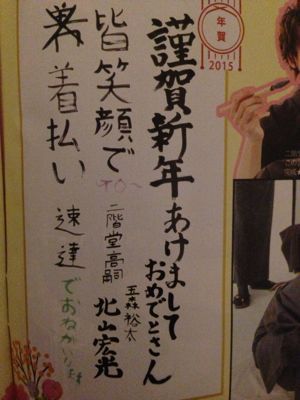 年賀
2015
謹賀新年あけまして
おめでとさん
玉森裕太
北山宏光
二階堂高嗣
皆笑顔で
TO〜
裏着払い
速達でおねがい